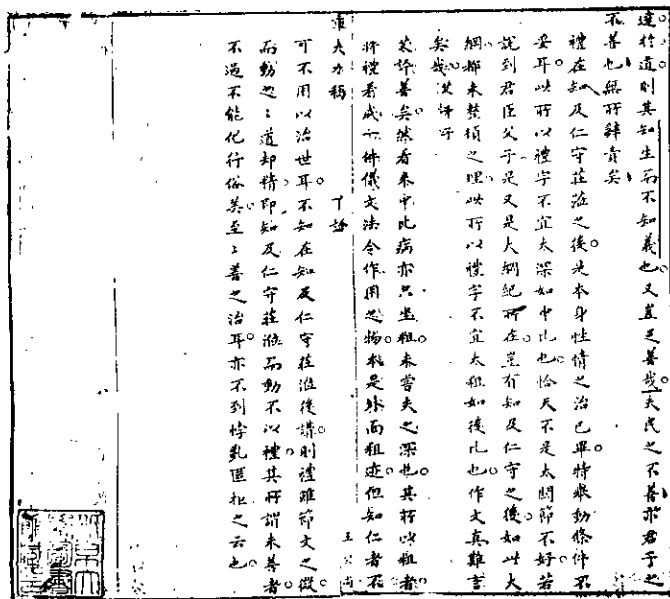 達於道則其知生而不知義也又豈足善哉夫民之不善亦君子之
不善也無所辭責矣
禮在知及仁守莊涖之後是本身性情之治已畢特与動條件不
妥耳此所以禮字不宜太深如中比也恰又不是太閒節不好若
說到君臣父子是又是大綱紀所在豈有知及仁守之後如此大
綱都未整頓之理此所以禮字不宜太粗如後比也作文真難言
矣哉 汉評
莫評善矣然看來中比病亦只坐粗未嘗失之深也其所以粗者
將禮看成一件儀文法令作用之物本是外面粗迹但知仁者不
可不用以治世耳不知在知及仁守莊涖後講則禮雖節文之微
而動之之道却精即知及仁守莊涖而動不以禮其所謂未善者
不過不能化行俗美至之善之治耳亦不到悖亂匡救之云也